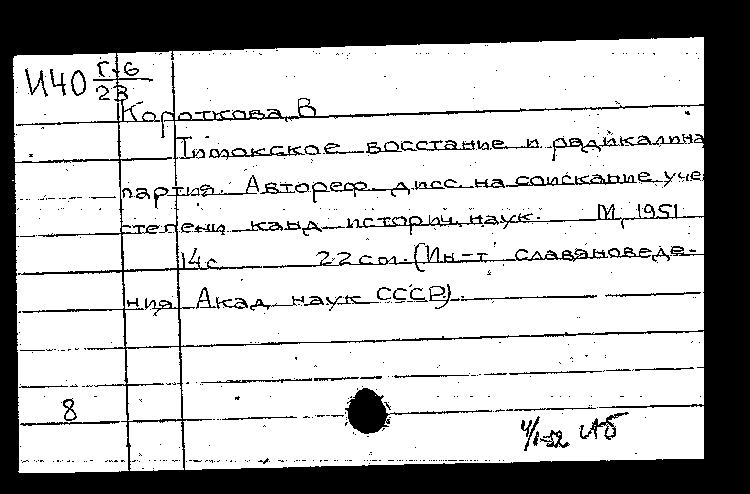 И40 Г-6
23
Короткова, В
Тимокское восстание и радикальна
партия. Автореф. дисс. на соискание уче
степени канд. историч. наук. М, 1951
14с 22 см. (Ин-т славяноведе-
ния Акад. наук СССР).
8
4/I-52